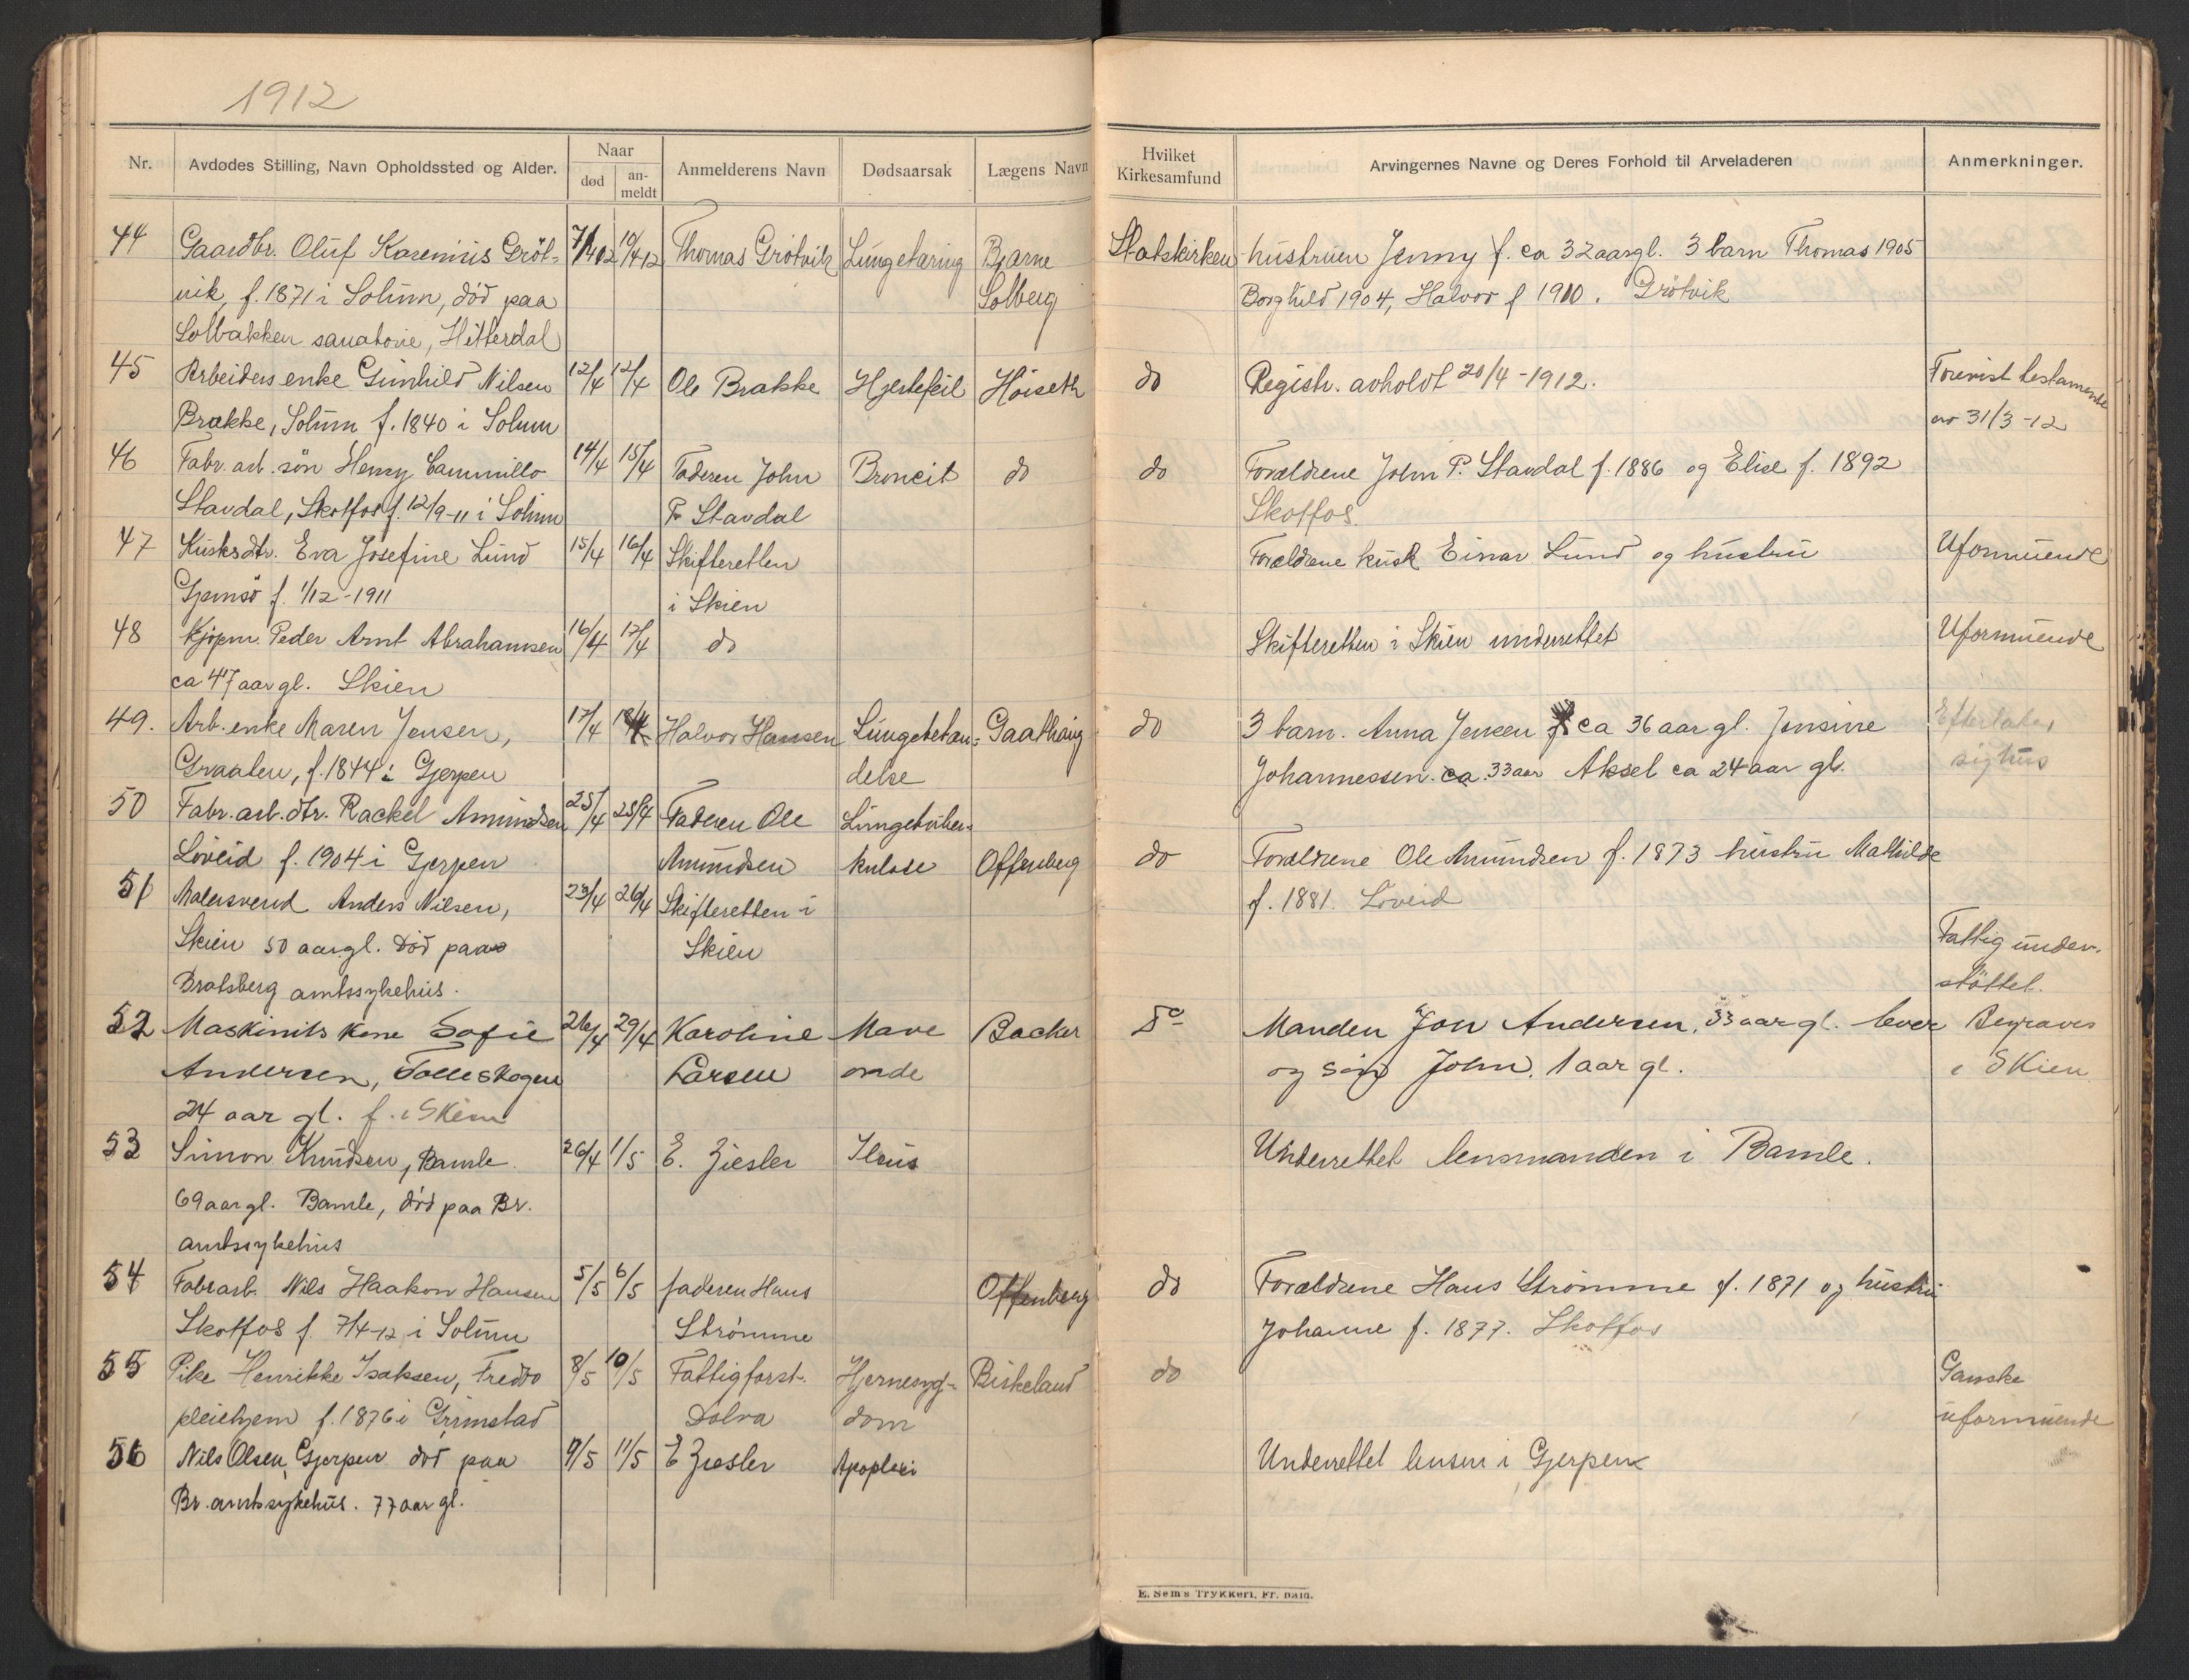 1912
Nr. Avdødes Stilling, Navn Opholdssted og Alder. Naar død an-meldt Anmelderens Navn Dødsaarsak Lægens Navn Hvilket Kirkesamfund Arvingernes Navne og Deres Forhold til Arveladeren Anmerkninger.
44 Gaardbr. Oluf Karenius Grøt- 7/4 12 10/4 12 Thomas Grøtvik Lungetæring Bjarne Statskirken hustruen Jenny f. ca 32 aar gl. 3 barn Thomas 1905
vik, f. 1871 i Solum, død paa Solberg Borghild 1904, Halvor f 1910. Grøtvik
Solbakken sanatorie, Hitterdal
45 Arbeiders enke Gunhild Nilsen 12/4 12/4 Ole Brække Hjertefeil Høiseth do Registr. avholdt 20/4-1912. Forevist testamente
Brække, Solum f. 1840 i Solum av 31/3-12
46 Fabr. arb. søn Henry Cammillo 14/4 15/4 Faderen John Broncit do do Forældrene John P. Stavdal f. 1886 og Elise f. 1892
Stavdal, Skotfos f. 12/9-11 i Solum P. Stavdal Skotfos
47 Kusks dtr. Eva Josefine Lund 15/4 16/4 Skifteretten Forældrene kusk Einar Lund og hustru Uformuende
Gjemsø f. 1/12-1911 i Skien
48 Kjøpm. Peder Arnt Abrahamsen 16/4 17/4 do Skifteretten i Skien underrettet Uformuende
ca 47 aar gl. Skien
49. Arb. enke Maren Jensen, 17/4 18/4 Halvor Hansen Lungebetæn- Gaathaug do 3 barn. Anna Jensen ca 36 aar gl. Jensine Efterlater
Graaten, f. 1844 i Gjerpen delse Johannessen ca. 33 aar Aksel ca 24 aar gl.
50 Fabr. arb. dtr. Rackel Amundsen 25/4 25/4 Faderen Ole Lungetuber-
Løveid f. 1904 i Gjerpen Amundsen kulose Offenberg do Forældrene Ole Amundsen f. 1873 hustru Mathilde
f. 1881. Løveid
51 Malersvend Anders Nilsen, 23/4 26/4 Skifteretten i
Skien 50 aar gl. død paa Skien Fattig under-
Bratsberg amtssykehus. støttet.
52 Maskinists kone Sofie 26/4 29/4 Karoline Mave Backer Do Manden Jon Andersen, 33 aar gl. lever Begraves
Andersen, Folleskogen Larsen onde og søn John. 1 aar gl. i Skien
24 aar gl. f. i Skien
53 Simon Knudsen, Bamle. 26/4 1/5 E. Ziesler Ileus Underrettet lensmanden i Bamle.
69 aar gl. Bamle, død paa Br.
amtssykehus
54 Fabr arb. Nils Haakon Hansen 5/5 6/5 faderen Hans Offenberg do Forældrene Hans Strømme f. 1871 og hustru
Skotfos f. 7/4-12 i Solum Strømme Johanne f. 1877. Skotfos
55 Pike Henrikke Isaksen, Fredbo 8/5 10/5 Fattigforst. Hjernesyg- Birkeland do Ganske
pleiehjem f. 1876 i Grimstad Dolva dom uformuende
56 Nils Olsen, Gjerpen død paa 9/5 11/5 E Ziesler Apoplexi Underrettet lensm i Gjerpen
Br. amtssykehus. 77 aar gl.
E. Sems Trykkeri, Fr.hald.